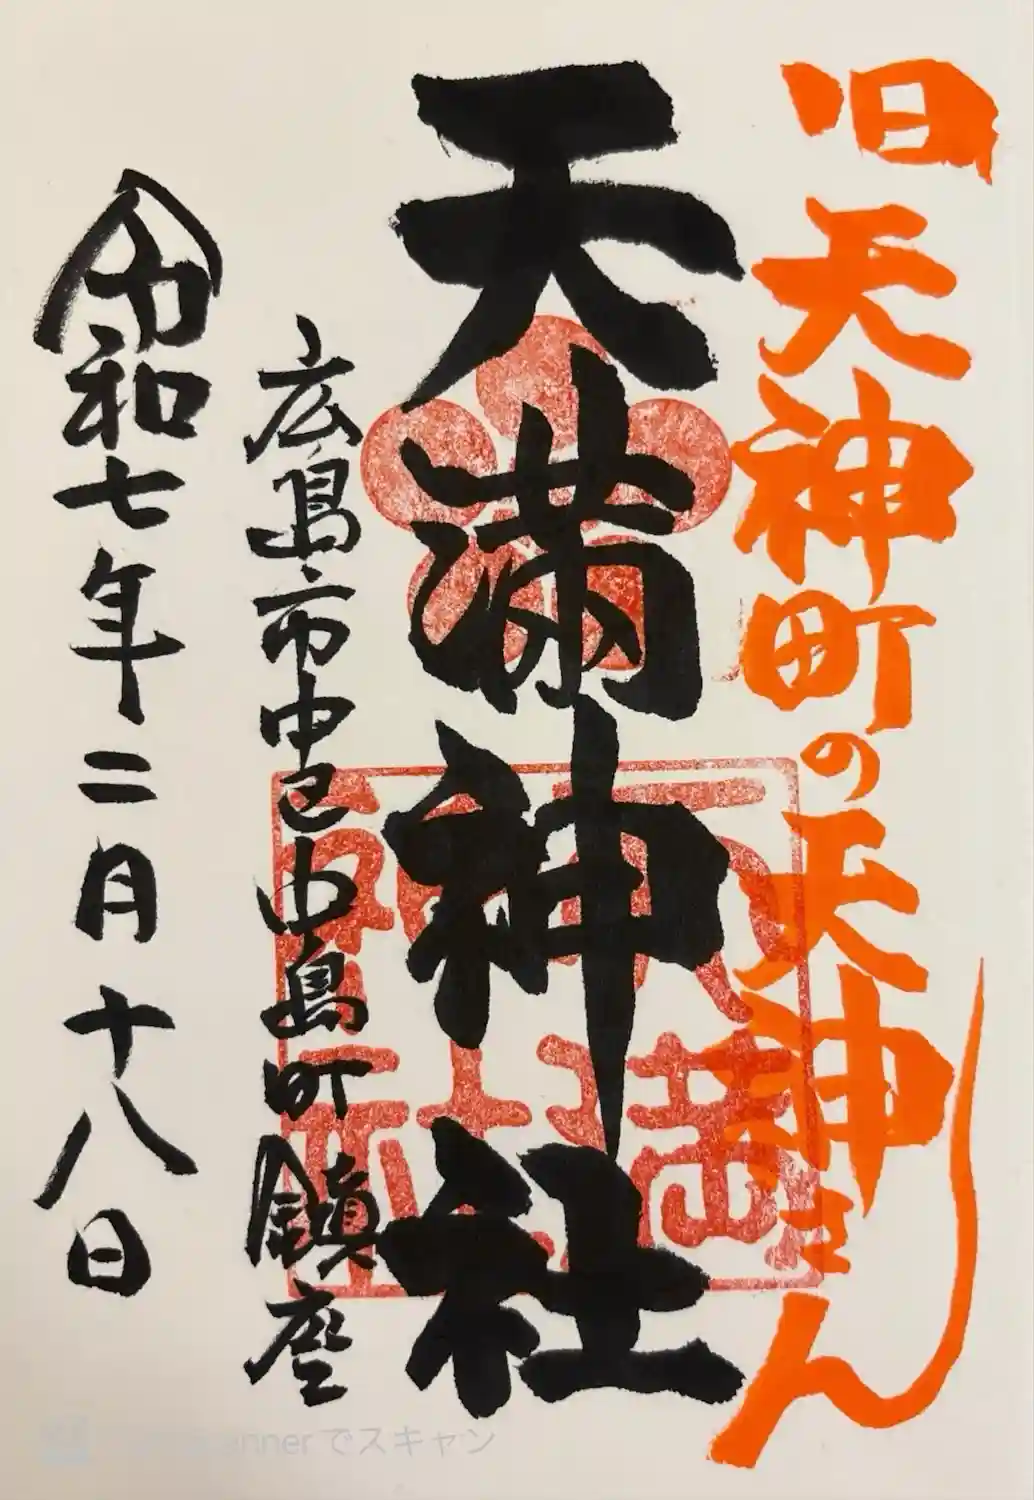 旧天神町の天神さん
天満神社
広島市中区中島町鎮座
令和七年二月十八日
天満神社
でスキャン